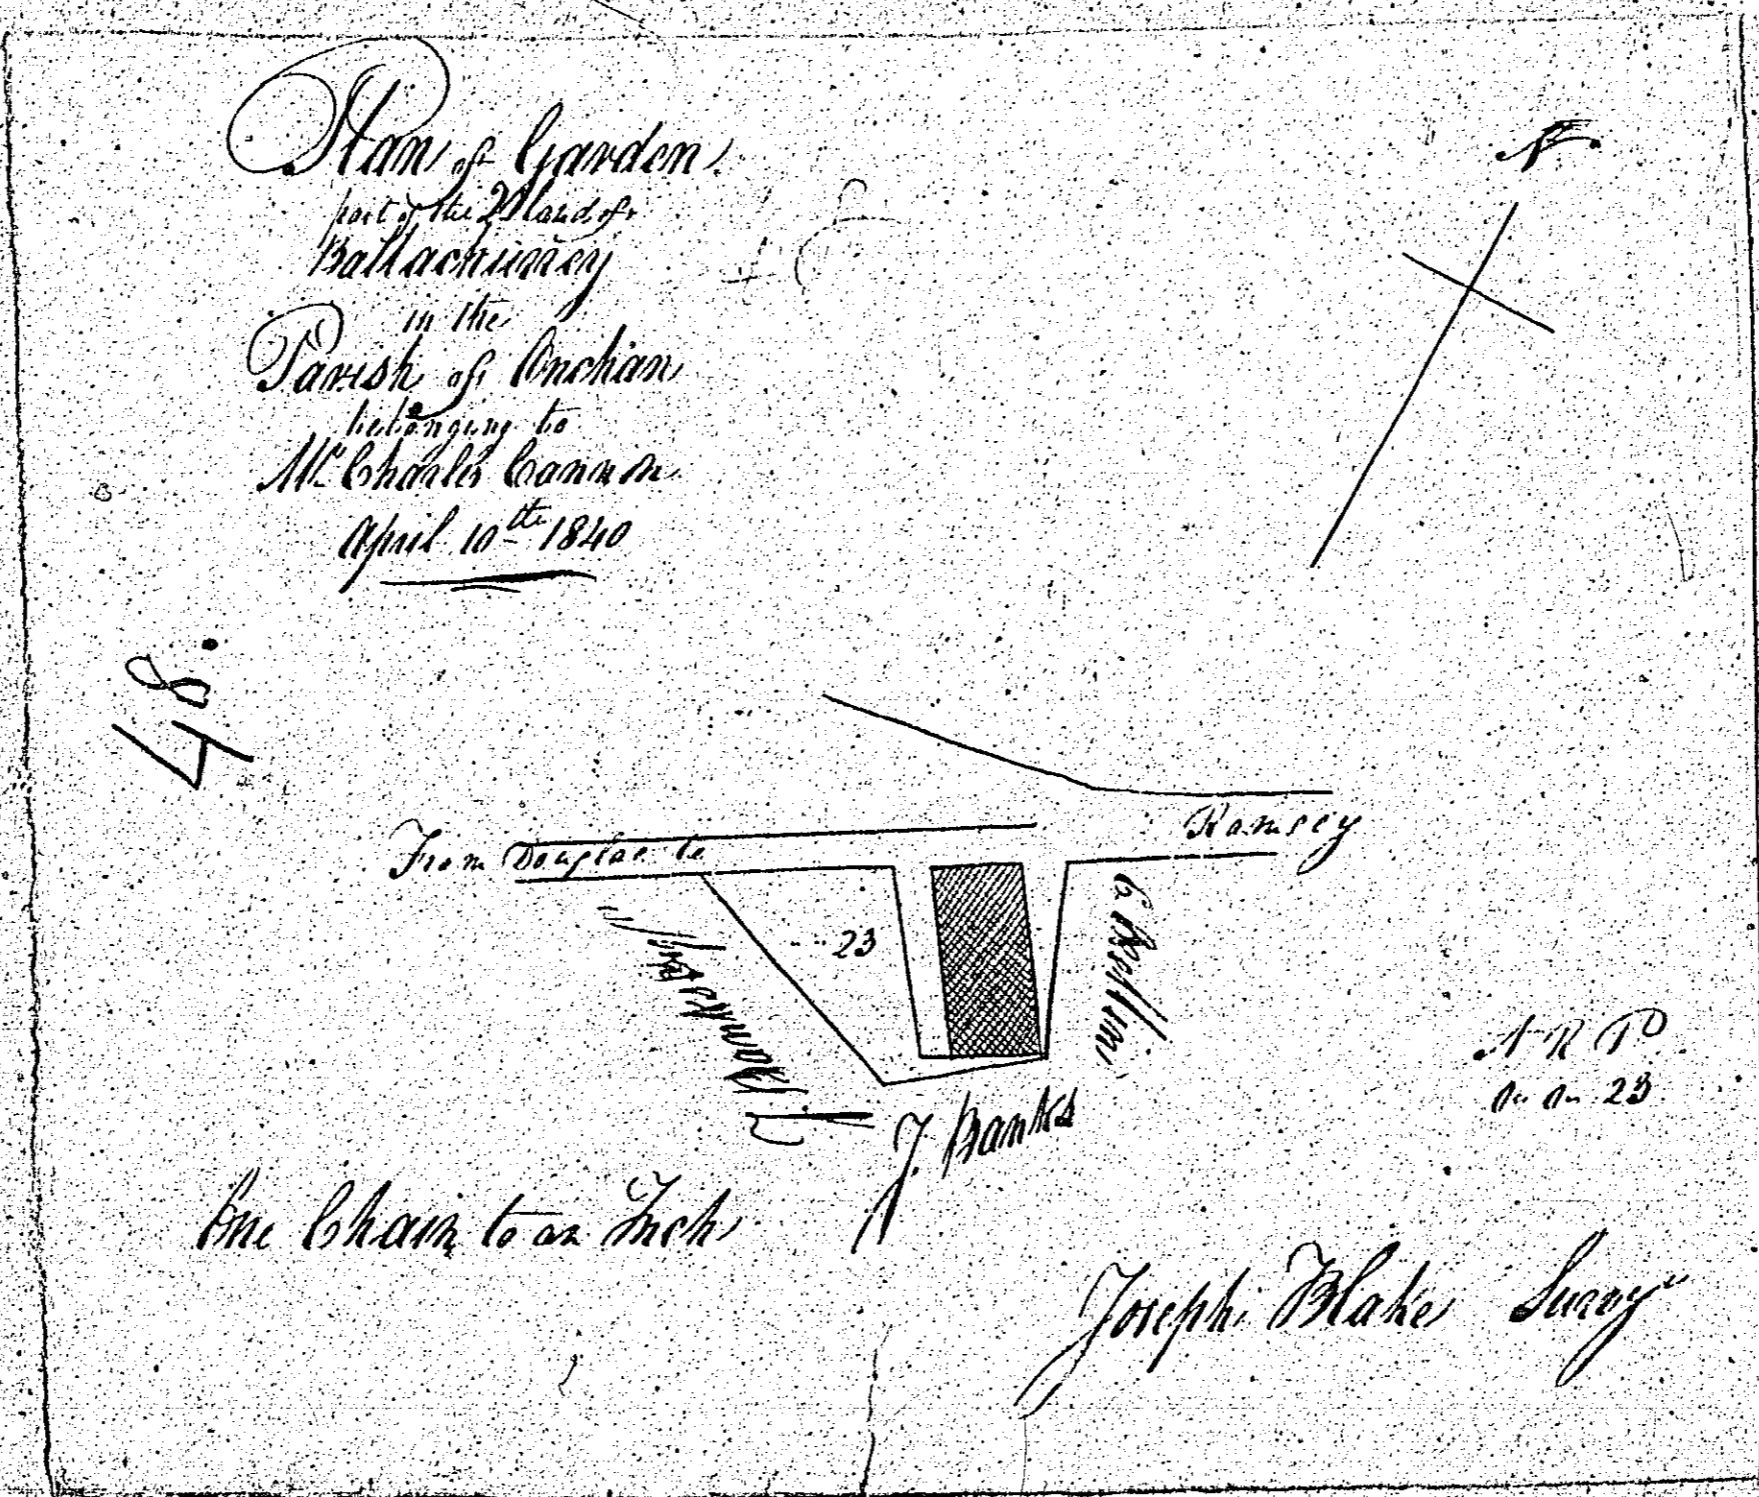 Plan of Garden
part of the 2d land of
Ballachurrey
in the
Parish of Onchan
belonging to
Mr Charles Cannon
April 10th 1840
N
48.
From Douglas to Ramsey
23
J. Banks
A R P
0 0 23
One Chain to an Inch
Joseph Blake Survyr